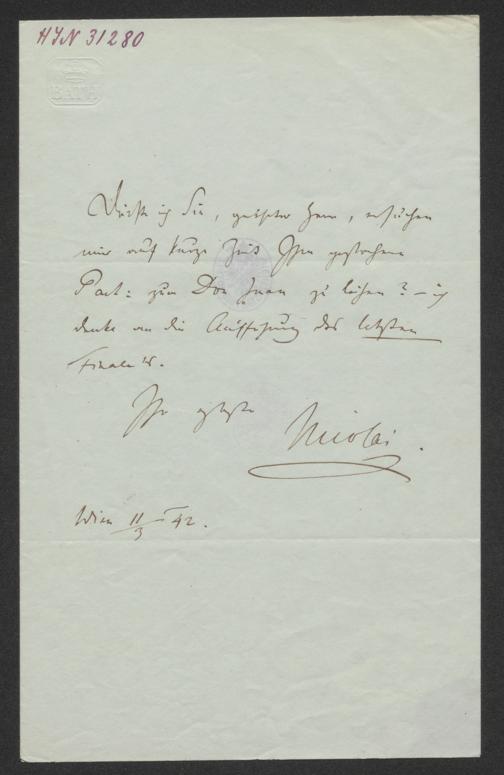 HIN 31280
BATH
Dürfte ich Sie, geehrter Herr, ersuchen
mir auf kurze Zeit Ihre gestochene
Part: zum Don Juan zu leihen? – ich
denke an die Aufführung des letzten
Finale's.
Ihr ergebenster
Nicolai.
Wien 11/3 42.